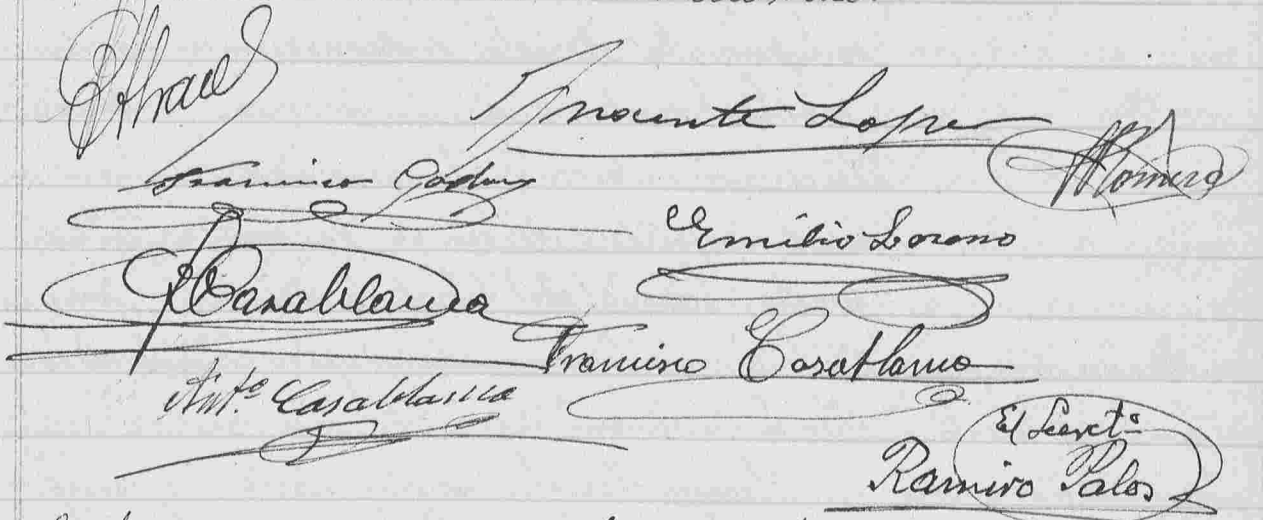 Inocente Lopez
Romero
Francisco Godoy
Emilio Lozano
R Casablanca
Francisco Casablanca
Ant.º Casablanca
El Secretº
Ramiro Palos